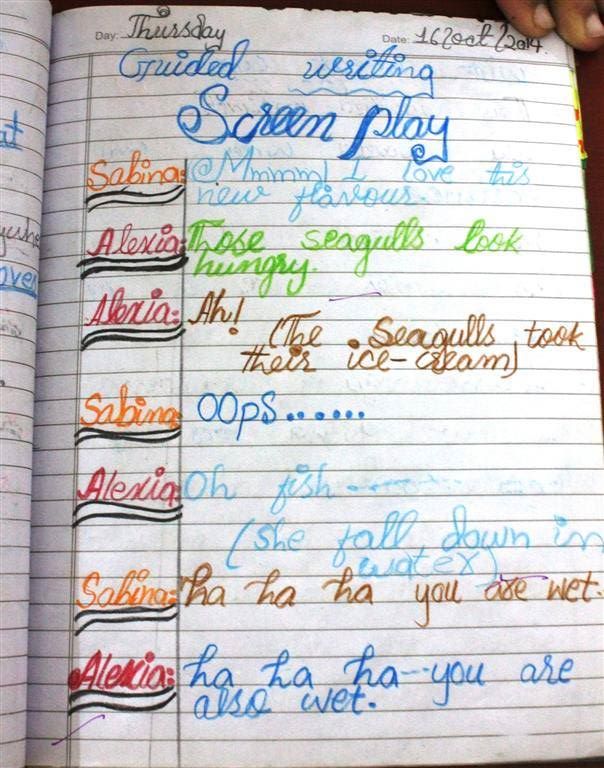 Day: Thursday Date: 16/oct/2014.
Guided writing
Screen play
Sabina: Mmmm I love this
new flavour.
Alexia: Those seagulls look
hungry.
Alexia: Ah!
(The Seagulls took
their ice-cream)
Sabina: OOps.......
Alexia: Oh fish ..........
(she fall down in
water)
Sabina: ha ha ha you are wet.
Alexia: ha ha ha--you are
also wet.